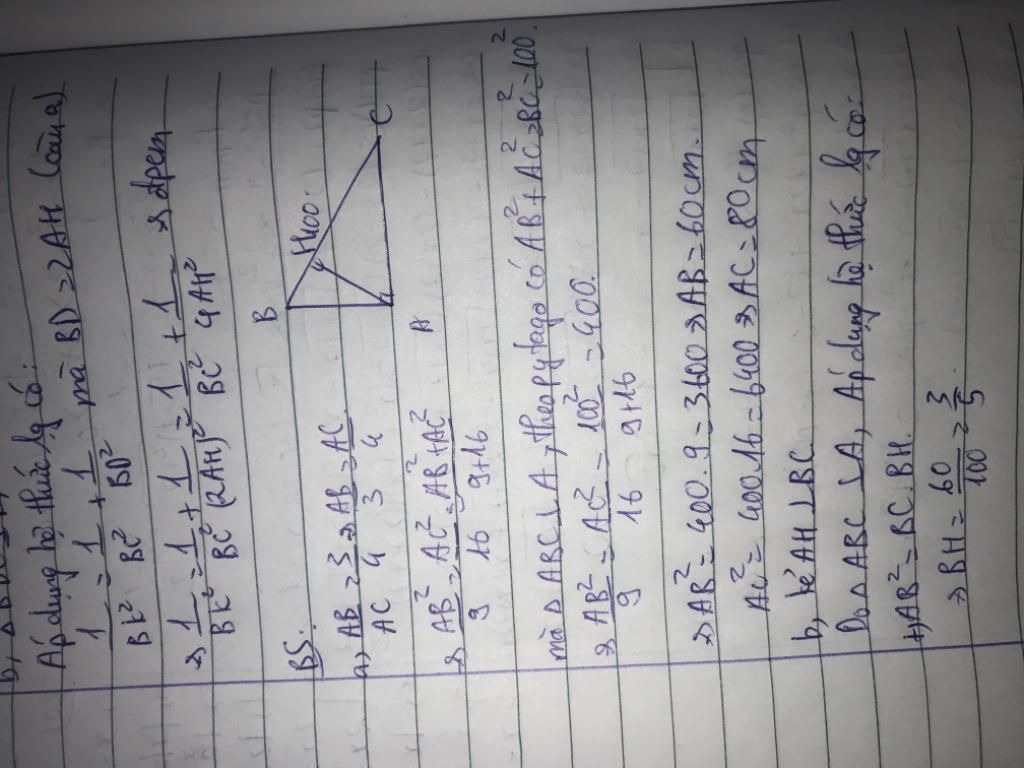 b, Δ
Áp dụng hệ thức lg có:
1/BK² = 1/BC² + 1/BD² mà BD = 2AH (câu a)
=> 1/BK² = 1/BC² + 1/(2AH)² = 1/BC² + 1/4AH² => đpcm
B5.
a) AB/AC = 3/4 => AB/3 = AC/4
=> AB²/9 = AC²/16 = AB²+AC²/9+16
B
H
100
A
C
mà Δ ABC ⊥ A, theo pytago có AB² + AC² = BC² = 100².
=> AB²/9 = AC²/16 = 100²/9+16 = 400.
=> AB² = 400.9 = 3600 => AB = 60cm.
AC² = 400.16 = 6400 => AC = 80cm
b, kẻ AH ⊥ BC
Do Δ ABC ⊥ A, Áp dụng hệ thức lg có:
+, AB² = BC.BH.
=> BH = 60/100 = 3/5.